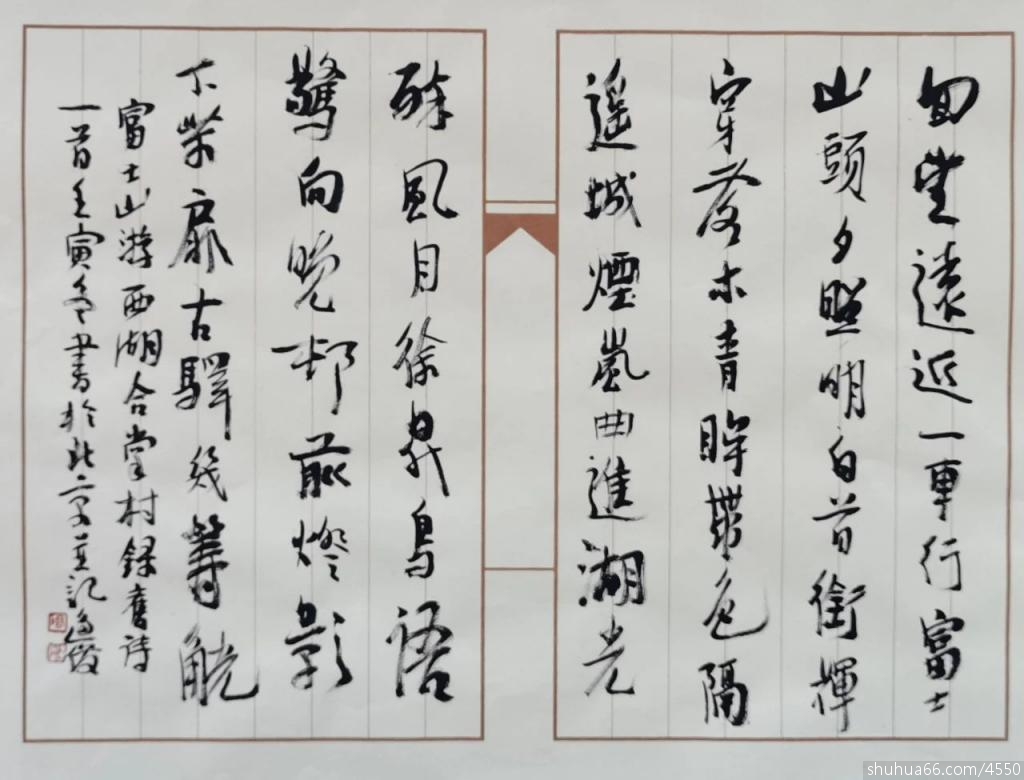 回望遠近一車行富士
山頭夕照明白首銜輝
穿落木青眸帶色隔
遙城煙嵐曲進湖光
醉風月徐昇鳥語
驚向晚邨前燈影
下柴扉古驛幾籌觥
富士山游西湖合掌村錄舊詩
一首壬寅冬書於北京並記
shuhua66.com/4550